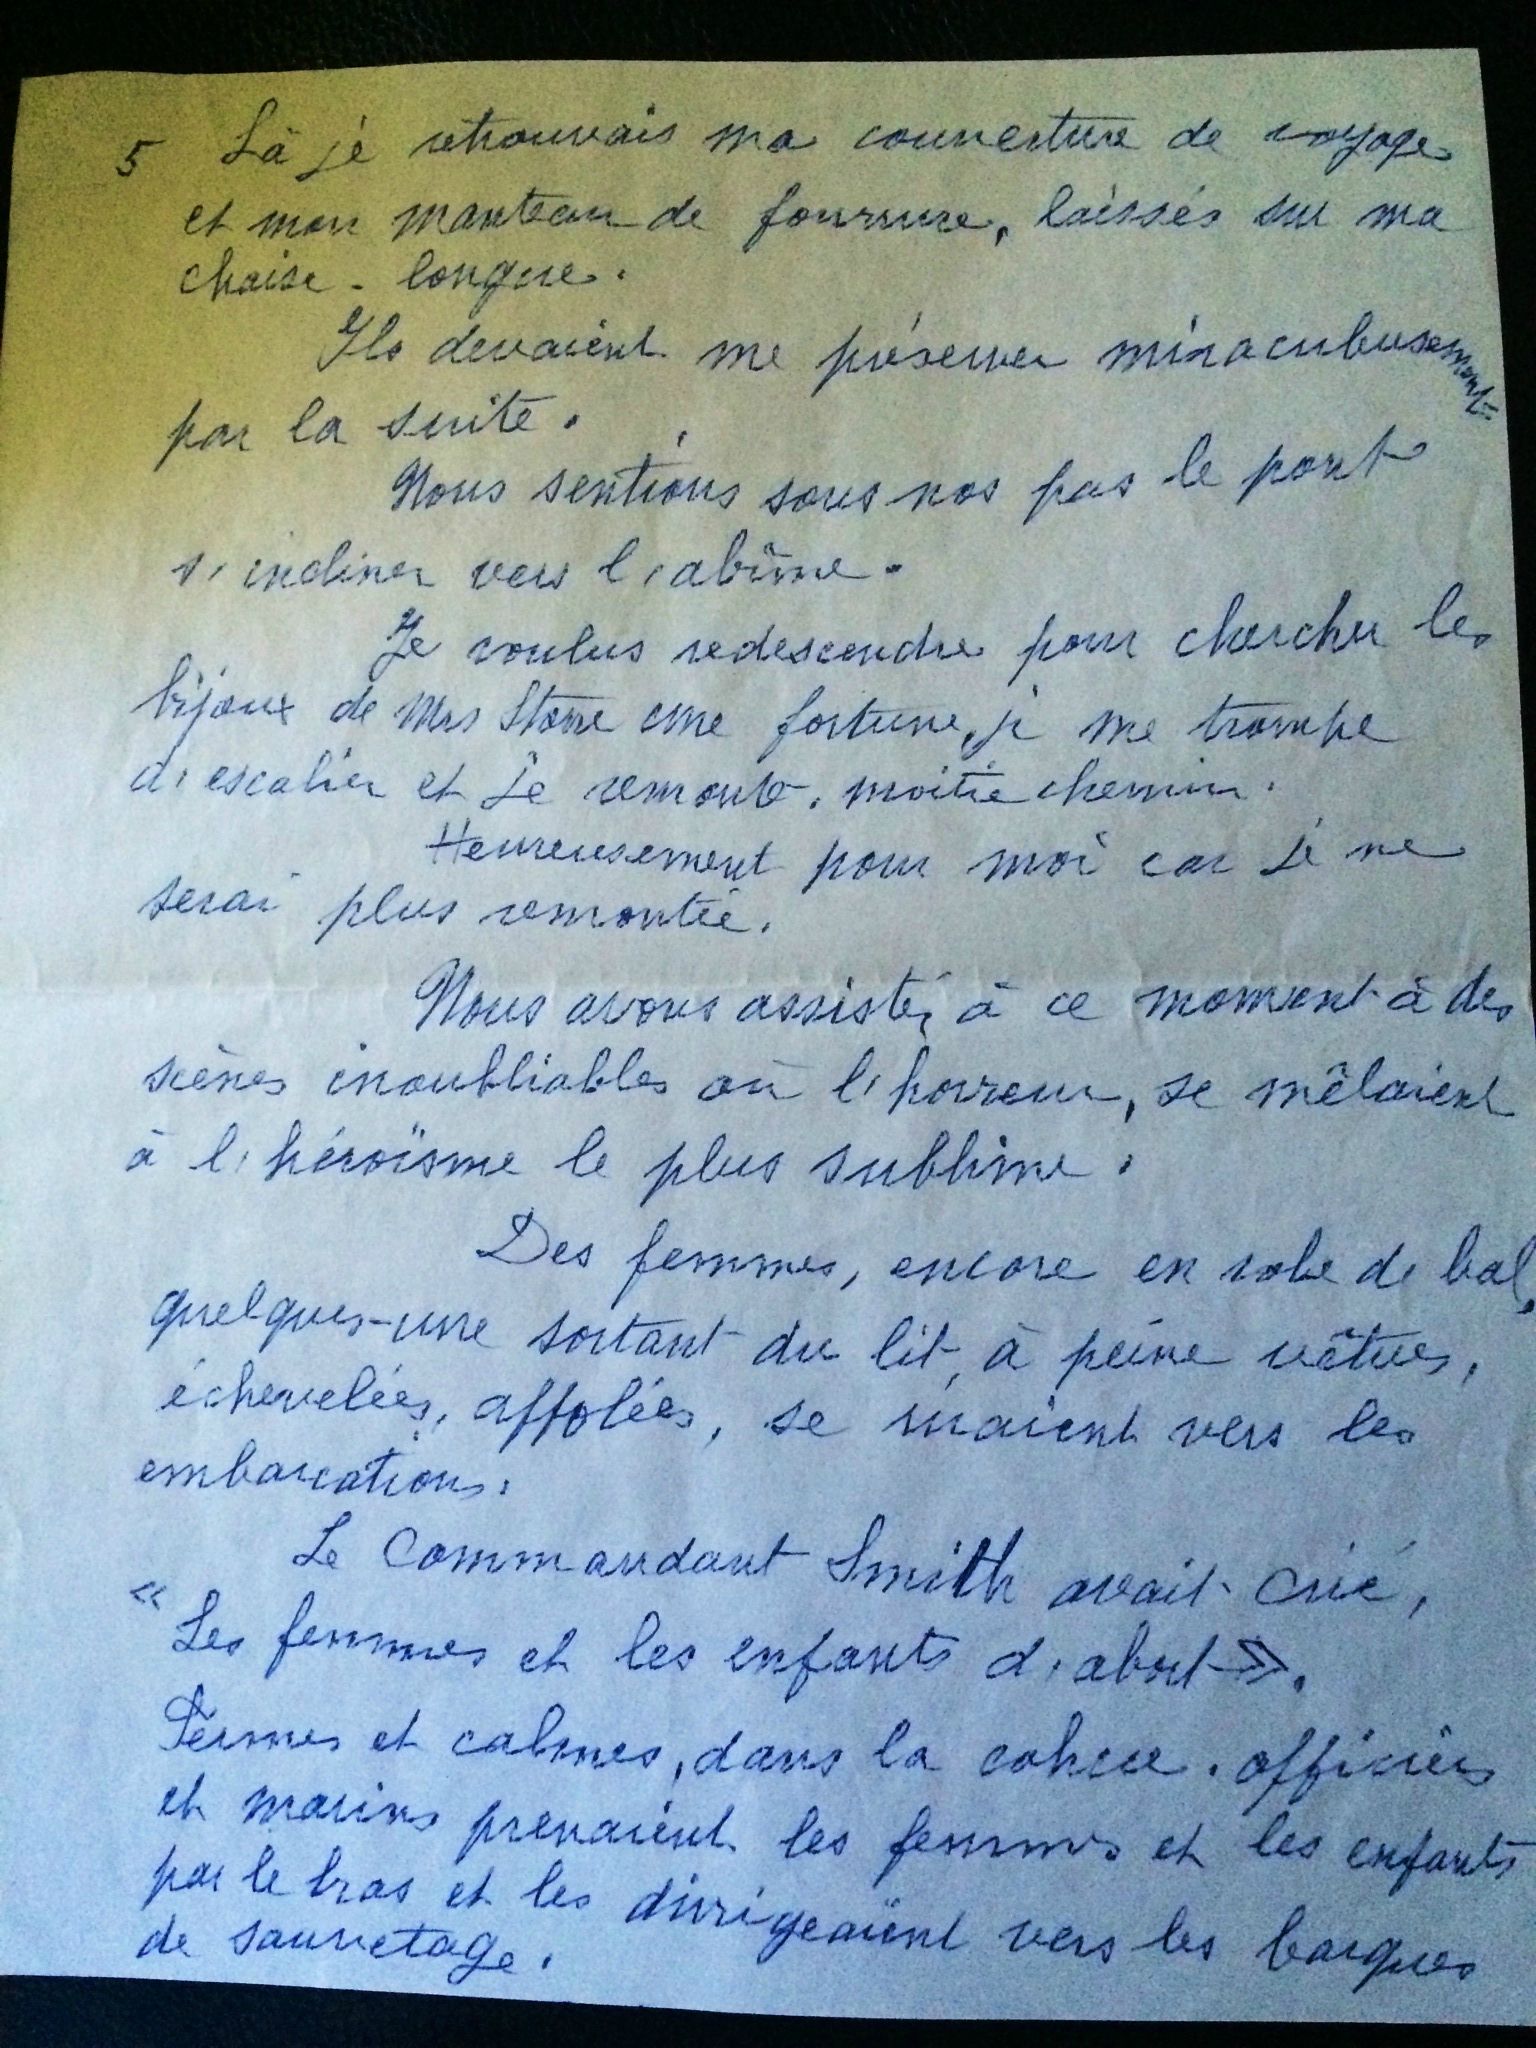 5 Là je retrouvais ma couverture de voyage
et mon manteau de fourrure, laissés sur ma
chaise-longue.
Ils devaient me préserver miraculeusement
par la suite.
Nous sentions sous nos pas le pont
s'incliner vers l'abîme.
Je voulus redescendre pour chercher les
bijoux de Mrs Stone une fortune, je me trompe
d'escalier et je remonte. moitié chemin.
Heureusement pour moi car je ne
serai plus remontée.
Nous avons assisté, à ce moment à des
scènes inoubliables où l'horreur, se mêlaient
à l'héroïsme le plus sublime.
Des femmes, encore en robe de bal,
quelques-une sortant du lit, à peine vêtues,
échevelées, affolées, se ruaient vers les
embarcations.
Le Commandant Smith avait crié,
« Les femmes et les enfants d'abort ».
Fermes et calmes, dans la cohue. officiers
et marins prenaient les femmes et les enfants
par le bras et les dirigeaient vers les barques
de sauvetage.